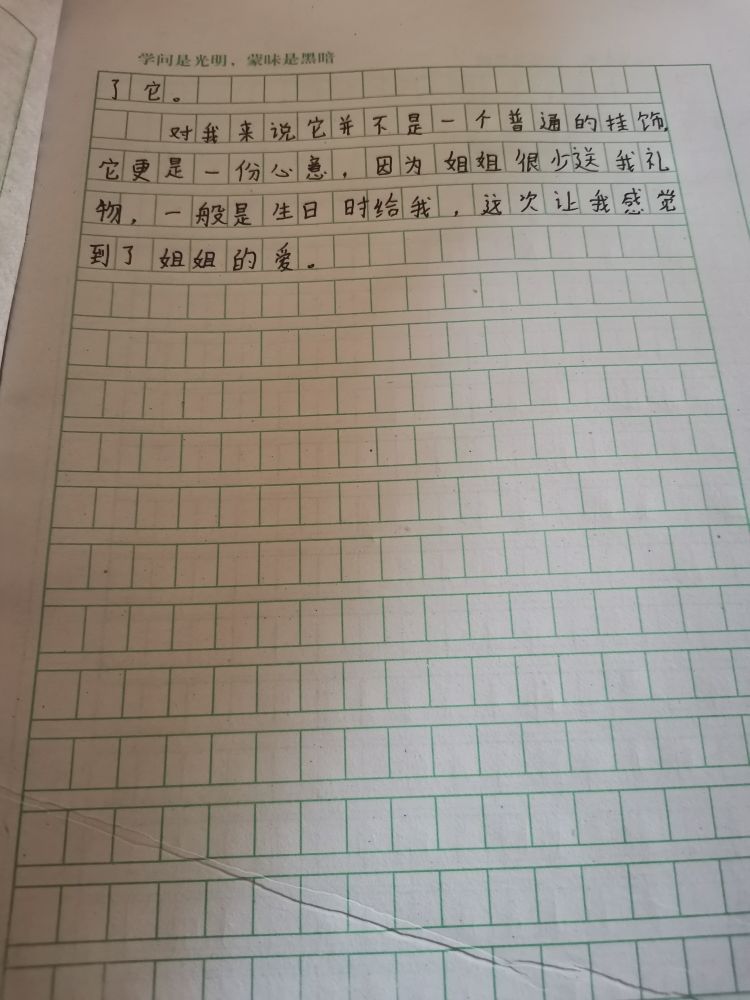 学问是光明，蒙昧是黑暗
了它。
对我来说它并不是一个普通的挂饰，
它更是一份心意，因为姐姐很少送我礼
物，一般是生日时给我，这次让我感觉
到了姐姐的爱。